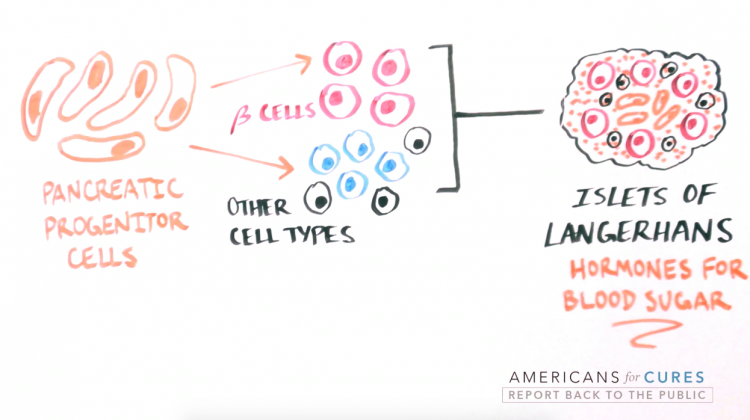 PANCREATIC
PROGENITOR
CELLS
β CELLS
OTHER
CELL TYPES
ISLETS OF
LANGERHANS
HORMONES FOR
BLOOD SUGAR
AMERICANS for CURES
REPORT BACK TO THE PUBLIC